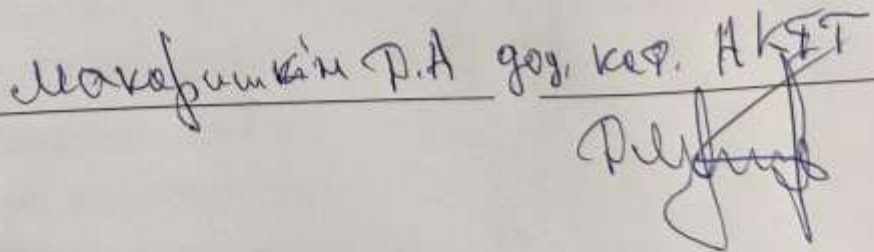 Макаришкін Д.А доц. каф. АКІТ